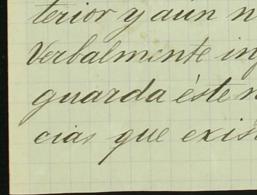 terior y aún n
Verbalmente inf
guarda éste n
cias que exis